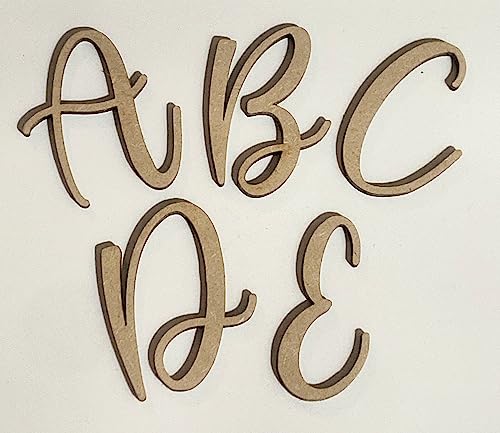 ABC
DE